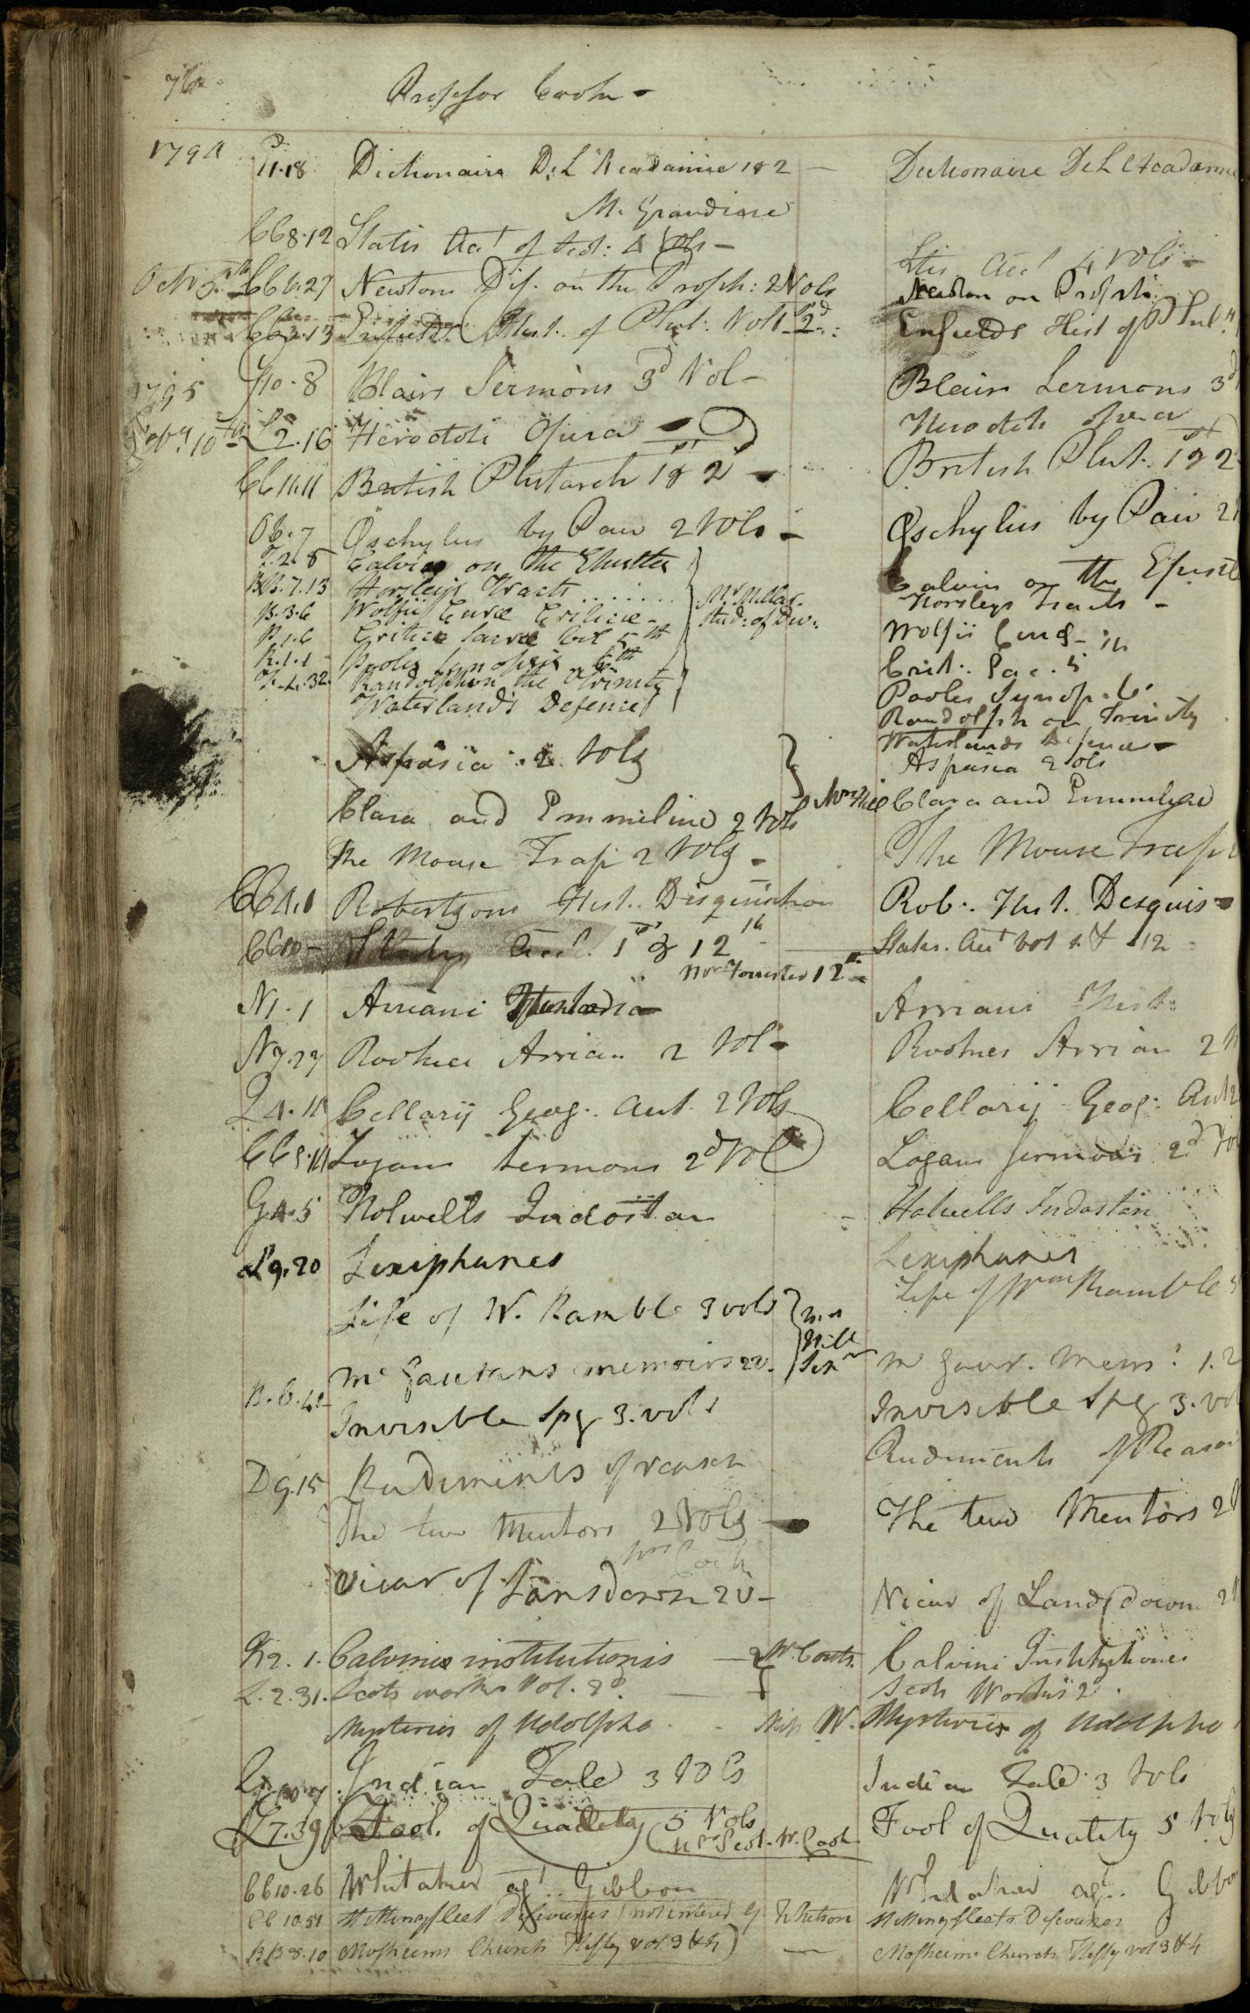 76
Professor Cook -
1794 P 11.18 Dictionaire De L'Academie 1 & 2 - Dictionaire De L'Academie
M. Grandiere
CC 8.12 Statis Acct of Scot: 4 Vols - Stis Acct 4 vols -
Octr CC 6.27 Newtons Dis. on the Proph: 2 Vols Newton on Proph:
CC 3.13 Enfields Hist. of Phil: Vol 2d Enfields Hist of Phil:
1795 8 Blairs Sermons 3d Vol - Blairs Sermons 3d
Feby 10th L 2.16 Herodoti Opera - Herodoti Opera
CC 11.11 British Plutarch 1 & 2 - British Plut. 1 & 2
7 Œschylus by Paw 2 Vols - Œschylus by Paw 2
8 Calvin on the Epistles Calvin on the Epistl
BB.7.13 Horsleys Tracts ....... Mr Millar. Horsleys Tracts -
B.3.6 Wolfii Curæ Criticæ - Stud: of Div: Wolfii Curæ -
B.1.6 Critica Sacra 5th Crit: Sac. 5
K.1.1 - Pooles Synopsis 5th Pooles Synop.
32 Randolph on the Trinity Randolph on Trinity
Waterlands Defence Waterlands Defence -
Aspasia 2 Vols Aspasia 2 Vols
Clara and Emmeline 2 Vols Mrs Hill Clara and Emmeline
The Mouse Trap 2 Vols - The Mouse Trap
CC 4.1 Robertsons Hist. Disquisition Rob: Hist. Disquis -
CC 10 - Statis Acct. 1st & 12th - Statis. Acct Vol 1 & 12
Mrs Forrester 12th -
N 1.1 Arriani Historia - Arriani Hist:
N 7.27 Rookes Arrian 2 Vol - Rookes Arrian 2
L 4.11 Cellarij Geog. Ant. 2 Vols Cellarij Geog: Ant
CC Logans Sermons 2d Vol Logans Sermons 2d Vol
G 4.5 Holwells Indostan - Holwells Indostan
L 9.20 Lexiphanes Lexiphanes
Life of W. Ramble 3 vols Mrs Life of Wm Ramble 3
Mc Gaurans memoirs 2 v. Hill Senr Mc Gaur. Mem: 1.2
B.6.41 Invisible Spy 3. vols Invisible Spy 3. vol
D 9.15 Rudiments of reason Rudiments of Reason
The two Mentors 2 Vols - The two Mentors 2
Mrs Cook
Vicar of Lansdown 2 v - Vicar of Landsdown 2
K 2.1. Calvinis institutionis - Mr Couts. Calvini Institutiones
L.2.31. Scots works Vol. 2d. - Scots Works 2.
Mysteries of Udolpho - Miss W. Mysteries of Udolpho
Indian Tale 3 Vols Indian Tale 3 Vols
L 7.39 Fool of Quality 5 Vols Fool of Quality 5 Vols
Mrs Scot. W. Cook
CC 10.26 Whitaker agt. Gibbon Whitaker agt. Gibbon
CC 10.51 Stillingfleet Discourses (not entered by Whitson Stillingfleets Discourses
BB 8.10 Mosheims Church Histy vol 3 & 4) - Mosheims Church Histy vol 3 & 4